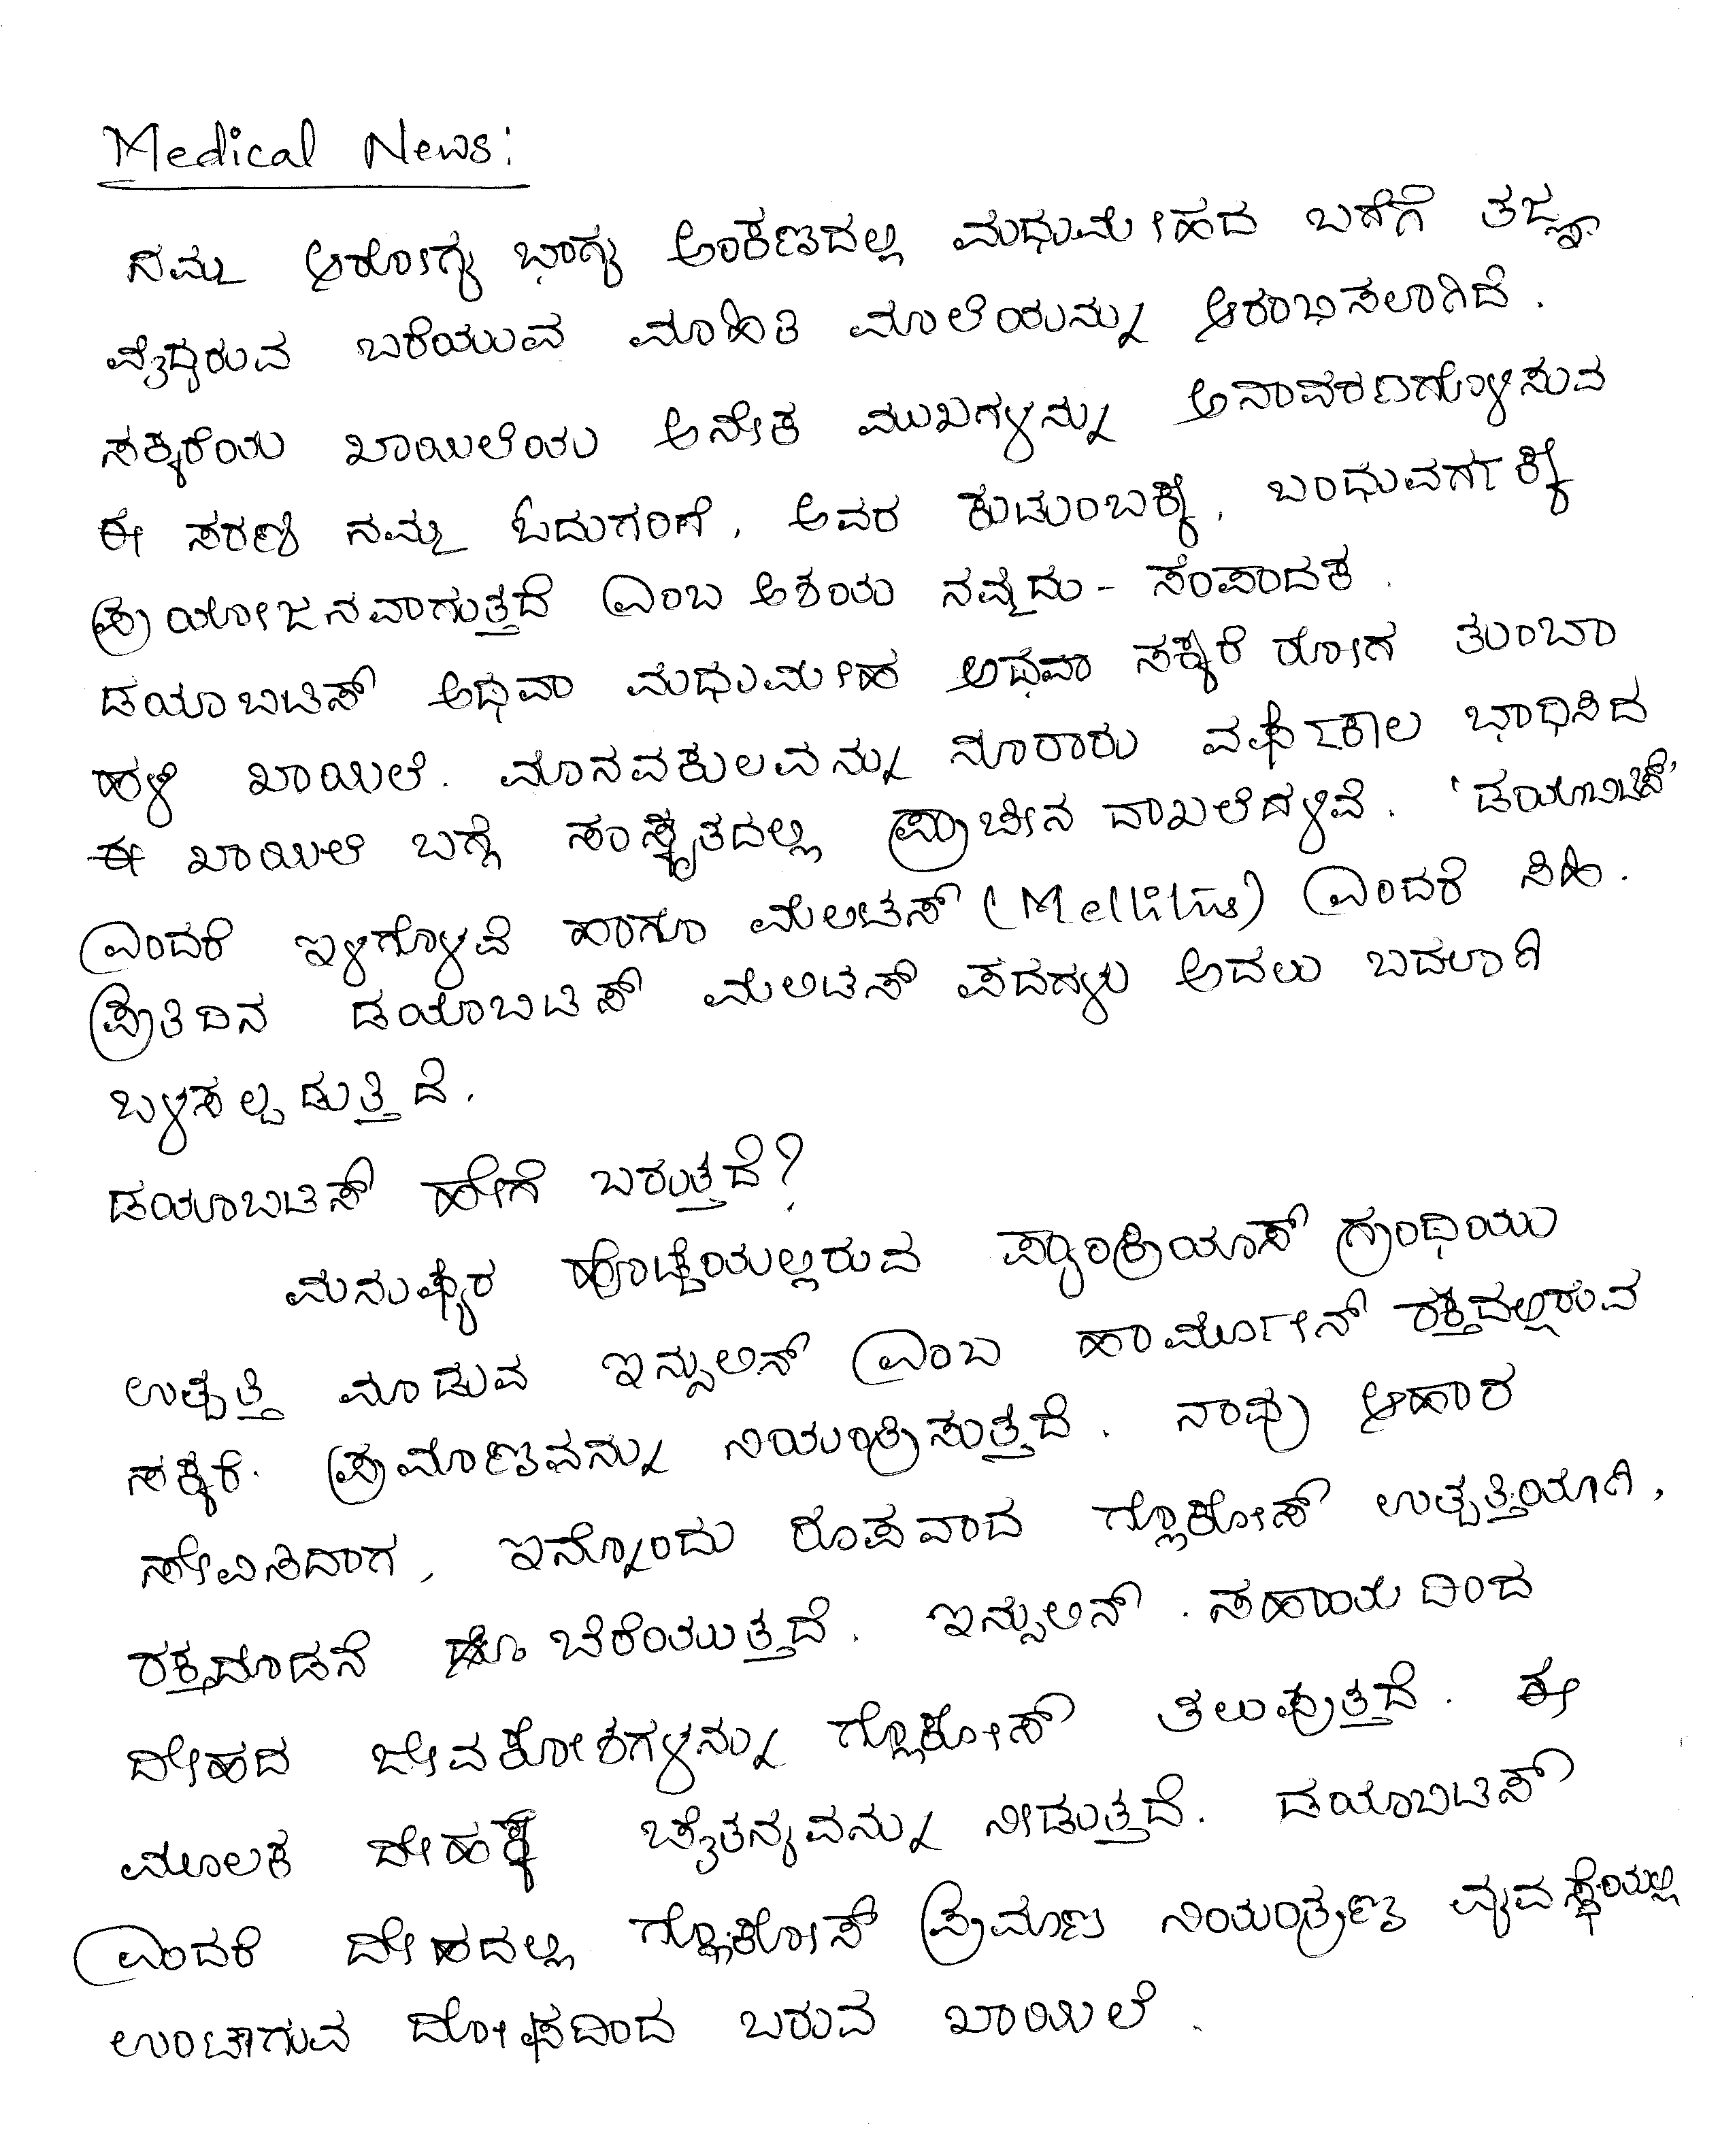 Medical News:
ನಮ್ಮ ಆರೋಗ್ಯ ಭಾಗ್ಯ ಅಂಕಣದಲ್ಲಿ ಮಧುಮೇಹದ ಬಗೆಗೆ ತಜ್ಞ
ವೈದ್ಯರುವ ಬರೆಯುವ ಮಾಹಿತಿ ಮಾಲೆಯನ್ನು ಆರಂಭಿಸಲಾಗಿದೆ.
ಸಕ್ಕರೆಯ ಖಾಯಿಲೆಯ ಅನೇಕ ಮುಖಗಳನ್ನು ಅನಾವರಣಗೊಳಿಸುವ
ಈ ಸರಣಿ ನಮ್ಮ ಓದುಗರಿಗೆ, ಅವರ ಕುಟುಂಬಕ್ಕೆ, ಬಂಧುವರ್ಗಕ್ಕೆ
ಪ್ರಯೋಜನವಾಗುತ್ತದೆ ಎಂಬ ಆಶಯ ನಮ್ಮದು - ಸಂಪಾದಕ.
ಡಯಾಬಿಟಿಸ್ ಅಥವಾ ಮಧುಮೇಹ ಅಥವಾ ಸಕ್ಕರೆ ರೋಗ ತುಂಬಾ
ಹಳೆ ಖಾಯಿಲೆ. ಮಾನವಕುಲವನ್ನು ನೂರಾರು ವರ್ಷಕಾಲ ಭಾಧಿಸಿದ
ಈ ಖಾಯಿಲೆ ಬಗ್ಗೆ ಸಂಸ್ಕೃತದಲ್ಲಿ ಪ್ರಾಚೀನ ದಾಖಲೆಗಳಿವೆ. 'ಡಯಾಬಿಟಿಸ್'
ಎಂದರೆ ಇಳಿಗೊಳವೆ ಹಾಗೂ ಮೆಲಿಟಸ್ (Mellitus) ಎಂದರೆ ಸಿಹಿ.
ಪ್ರತಿದಿನ ಡಯಾಬಿಟಿಸ್ ಮೆಲಿಟಸ್ ಪದಗಳು ಅದಲು ಬದಲಾಗಿ
ಬಳಸಲ್ಪಡುತ್ತಿದೆ.
ಡಯಾಬಿಟಿಸ್ ಹೇಗೆ ಬರುತ್ತದೆ?
ಮನುಷ್ಯರ ಹೊಟ್ಟೆಯಲ್ಲಿರುವ ಪ್ಯಾಂಕ್ರಿಯಾಸ್ ಗ್ರಂಥಿಯು
ಉತ್ಪತ್ತಿ ಮಾಡುವ ಇನ್ಸುಲಿನ್ ಎಂಬ ಹಾರ್ಮೋನ್ ರಕ್ತದಲ್ಲಿರುವ
ಸಕ್ಕರೆ. ಪ್ರಮಾಣವನ್ನು ನಿಯಂತ್ರಿಸುತ್ತದೆ. ನಾವು ಆಹಾರ
ಸೇವಿಸಿದಾಗ, ಇನ್ನೊಂದು ರೂಪವಾದ ಗ್ಲೂಕೋಸ್ ಉತ್ಪತ್ತಿಯಾಗಿ,
ರಕ್ತದೊಡನೆ ಬೆರೆಯುತ್ತದೆ. ಇನ್ಸುಲಿನ್. ಸಹಾಯದಿಂದ
ದೇಹದ ಜೀವಕೋಶಗಳನ್ನು ಗ್ಲೂಕೋಸ್ ತಲುಪುತ್ತದೆ. ಈ
ಮೂಲಕ ದೇಹಕ್ಕೆ ಚೈತನ್ಯವನ್ನು ನೀಡುತ್ತದೆ. ಡಯಾಬಿಟಿಸ್
ಎಂದರೆ ದೇಹದಲ್ಲಿ ಗ್ಲೂಕೋಸ್ ಪ್ರಮಾಣ ನಿಯಂತ್ರಣ ವ್ಯವಸ್ಥೆಯಲ್ಲಿ
ಉಂಟಾಗುವ ದೋಷದಿಂದ ಬರುವ ಖಾಯಿಲೆ.